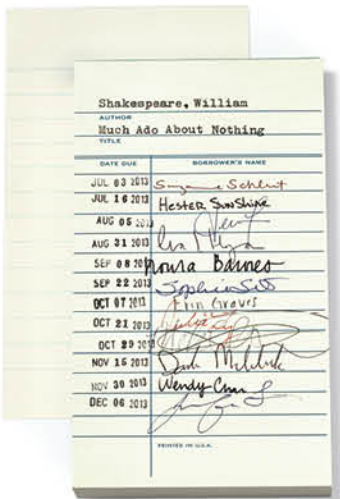 Shakespeare, William
AUTHOR
Much Ado About Nothing
TITLE
DATE DUE BORROWER'S NAME
JUL 03 2013 Suzanne Schlent
JUL 16 2013 Hester Sunshine
AUG 05 2013
AUG 31 2013
SEP 08 2013 Moura Barnes
SEP 22 2013 Sophia
OCT 07 2013 Erin Graves
OCT 21 2013
OCT 29 2013
NOV 16 2013
NOV 30 2013 Wendy Chan
DEC 06 2013
PRINTED IN U.S.A.